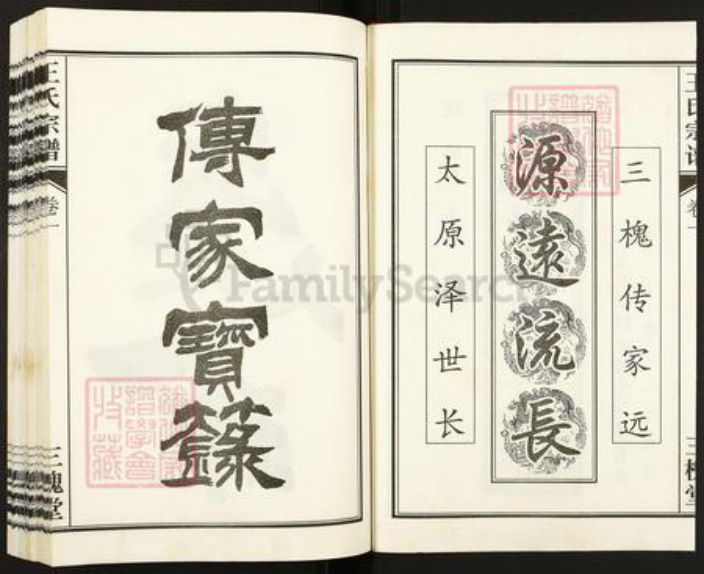 三槐传家远
源遠流長
太原泽世长
王氏宗谱
卷一
三槐堂
傳家寶籙
王氏宗譜
卷一
三槐堂
FamilySearch
譜學會
收藏